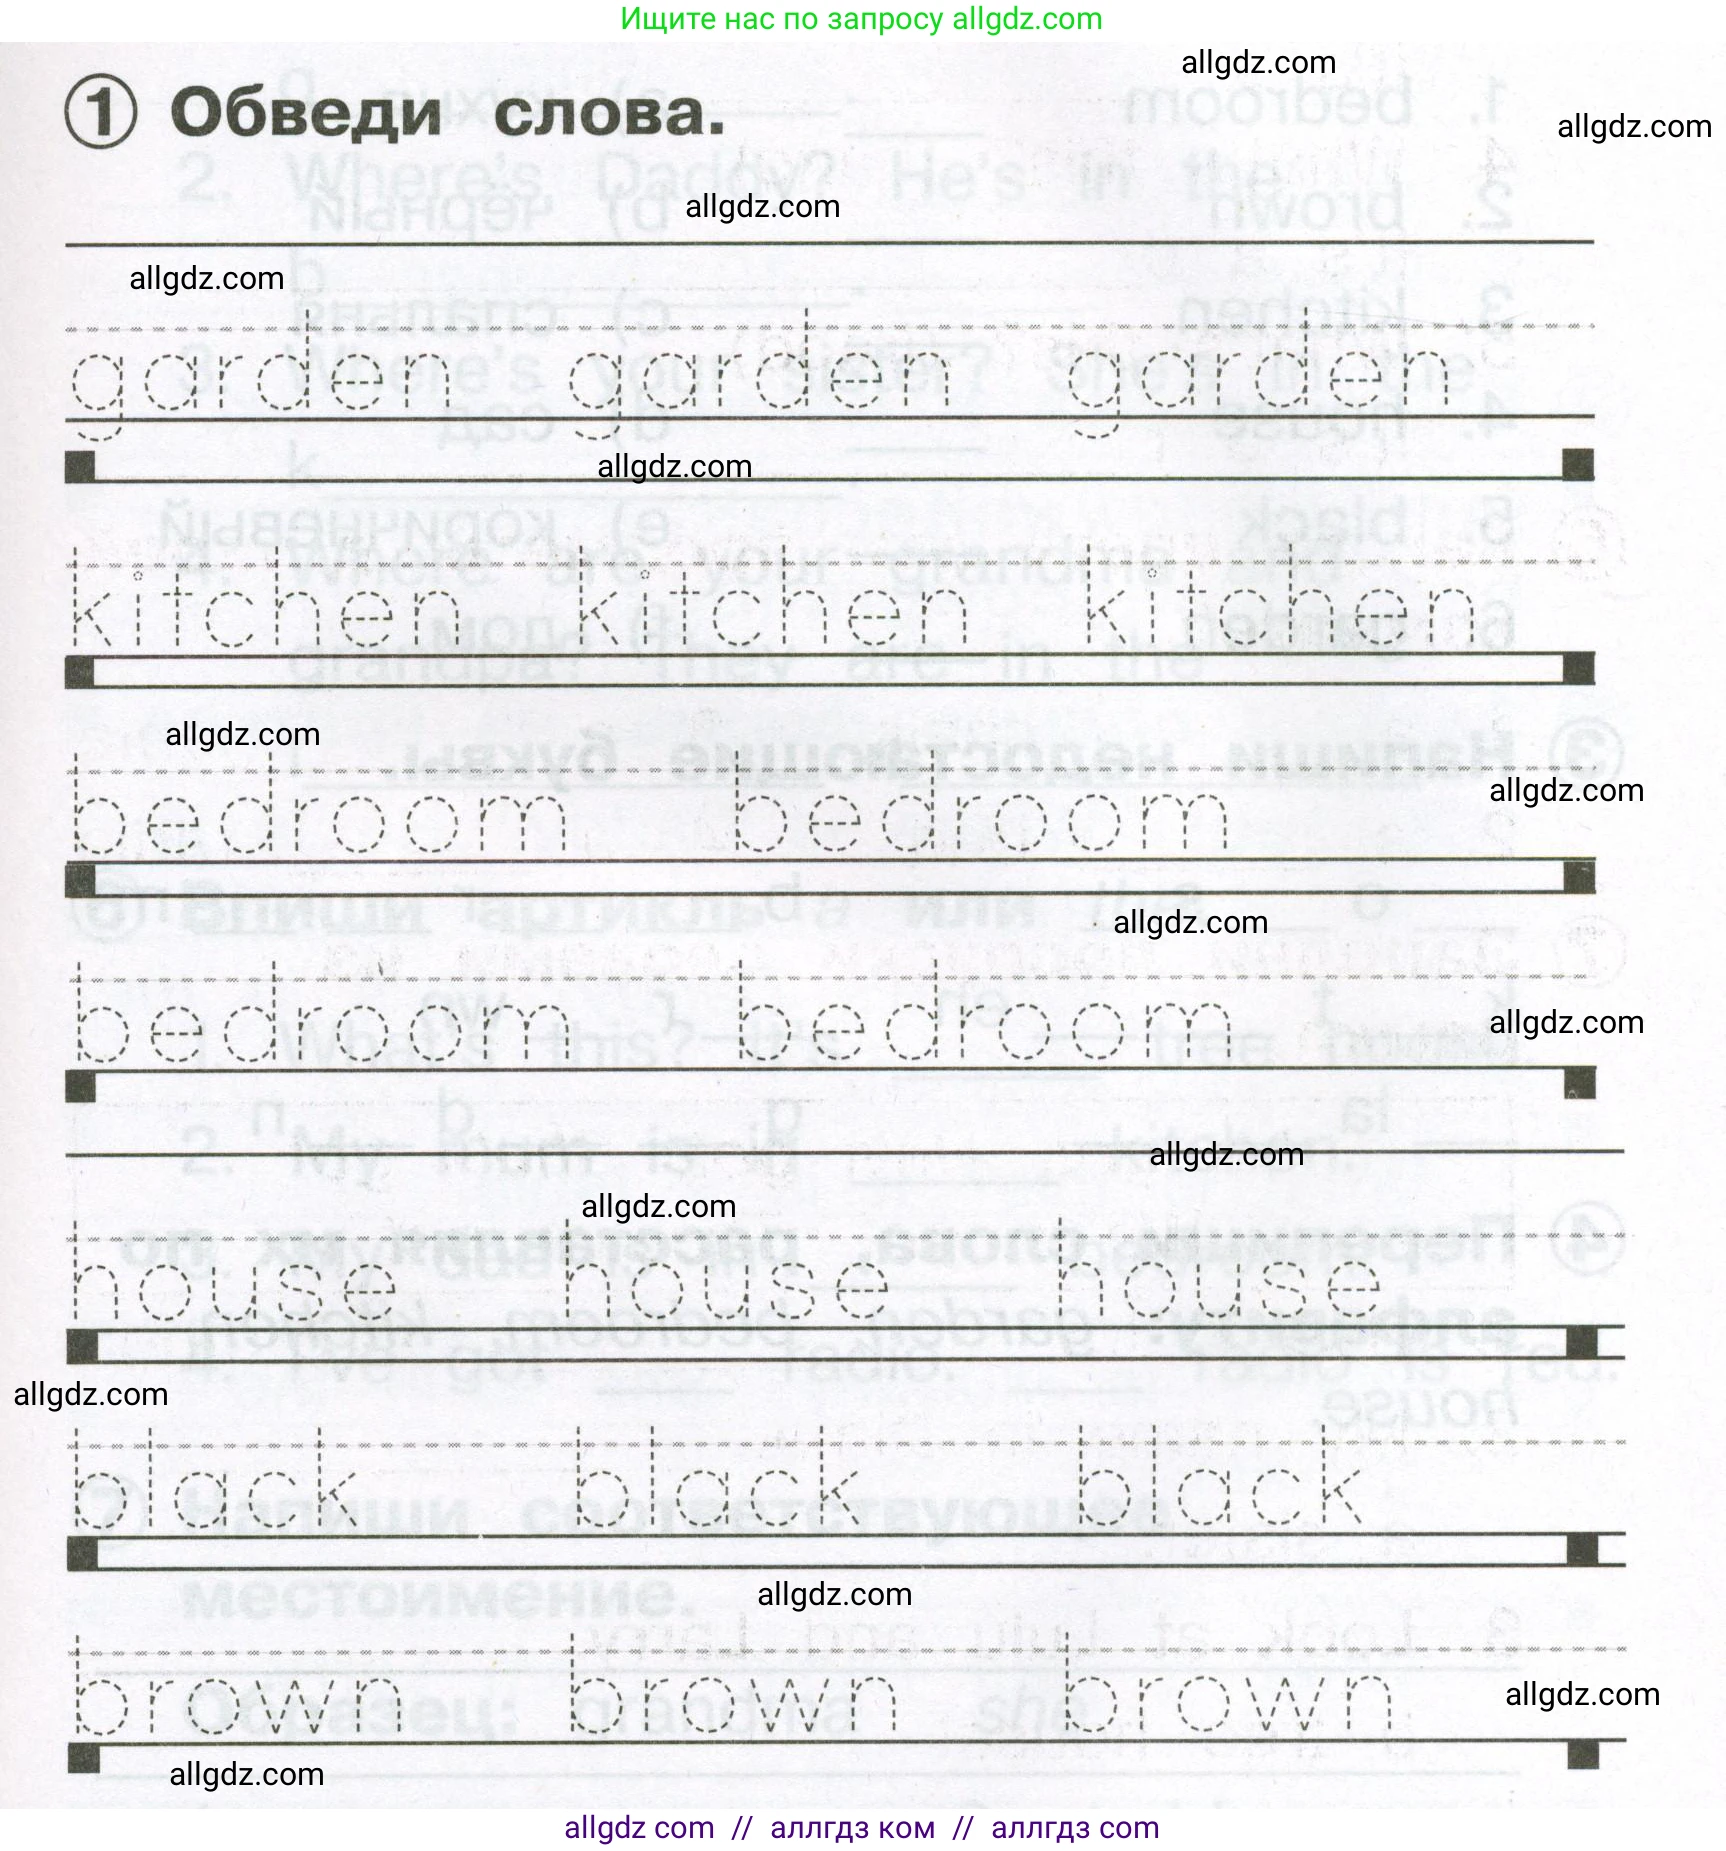 Ищите нас по запросу allgdz.com
allgdz.com
① Обведи слова.
allgdz.com
allgdz.com
allgdz.com
garden garden garden
allgdz.com
kitchen kitchen kitchen
allgdz.com
bedroom bedroom
allgdz.com
allgdz.com
bedroom bedroom
allgdz.com
allgdz.com
allgdz.com
house house house
allgdz.com
black black black
allgdz.com
brown brown brown
allgdz.com
allgdz.com
allgdz com // аллгдз ком // аллгдз com